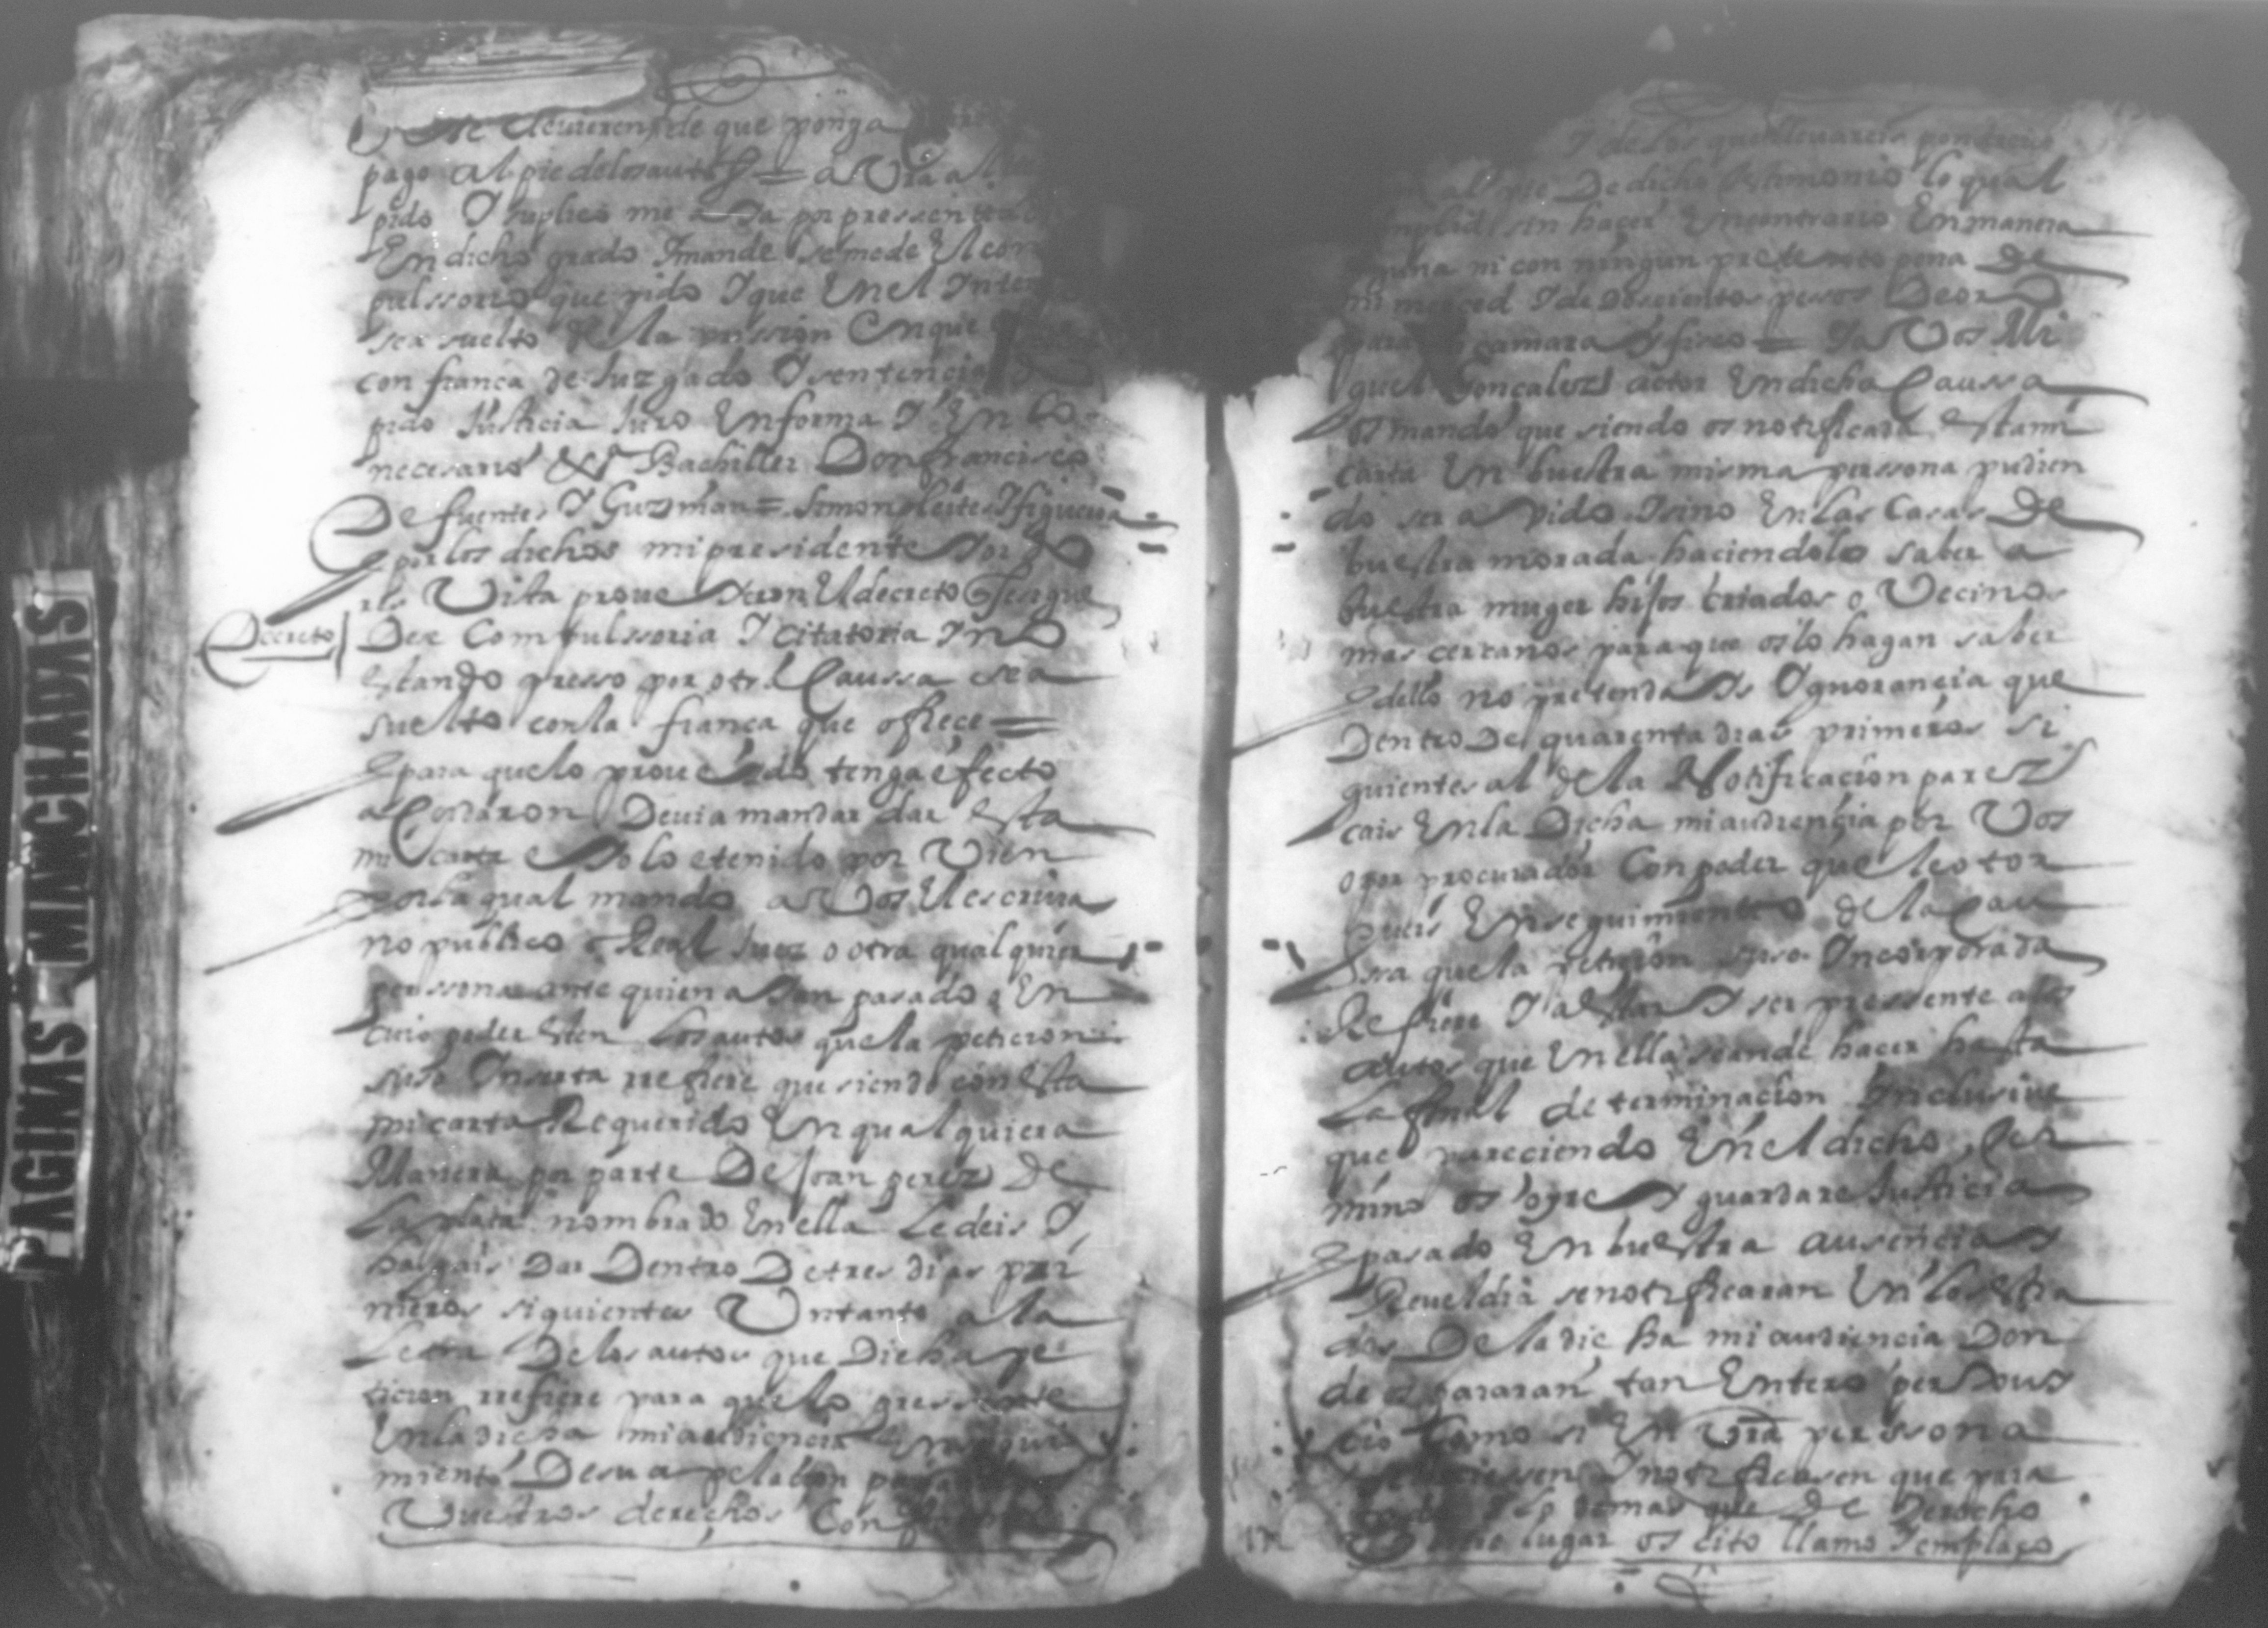 se le deuieren de que ponga
pago al pie de los autos = a Vra al
pido Y suplico me aya por pressenta
En dicho grado Y mande se me de El com
pulssorio que pido Y que En el Inter
sea suelto de la prission En que
con fiança de Juzgado Y sentencia
pido Justicia Juro En forma Y En lo
necesario &ª Bachiller Don francisco
De fuentes Y Guzman = Simon fleites Y figueroa
E por los dichos mi presidente Y oydo
res Vista proueyeron El decreto Sigue
Decreto
Dese Compulssoria Y citatoria Y no
Estando presso por otra Caussa sea
suelto con la fiança que ofrece =
E para que lo proueydo tenga efecto
acordaron Deuia mandar dar Esta
mi carta e yo lo e tenido por Vien
por la qual mando a Vos El escriua
no publico o Real Juez o otra qualquier
perssona ante quien ayan pasado o En
cuio poder Esten Los autos que la peticion
suso Inserta rrefiere que siendo con Esta
mi carta Requerido En qualquiera
Manera por parte De Joan perez De
La plata nombrado En ella Le deis Y
hagais Dar Dentro De tres dias pri
meros siguientes Vn tanto a la
Letra De los autos que Dicha pe
ticion rrefiere para que lo pressente
En la dicha mi audiencia En segui
miento De su apelacion
Vuestros derechos Con
Y de los que lleuareis pondreis
al pie De dicho testimonio lo qual
cumplid sin hacer En contrario En manera
alguna ni con ningun pretexto pena De
mi merced Y de Doscientos pesos De oro
para mi camara Y fisco = Y a Vos Mi
guel Gonçalez actor En dicha Caussa
os mando que siendo os notificada Esta mi
carta En buestra misma perssona pudien
do ser avido Y sino En las Casas De
buestra morada haciendolo saber a
buestra muger hijos criados o Vecinos
mas cercanos para que os lo hagan saber
E dello no pretendays Ygnorancia que
Dentro De quarenta dias primeros si
guientes al de la Notificacion parez
cais En la Dicha mi audiencia por Vos
o por procurador Con poder que le otor
gueis En seguimiento de la Cau
ssa que la peticion suso Incorporada
Refiere Y a Estar Y ser pressente a los
autos que En ella se an de hacer hasta
La final determinacion Inclusive
que pareciendo En el dicho Ter
mino os oyre Y guardare Justicia
E pasado En buestra ausencia Y
Reueldia se notificaran En los Estra
dos De la dicha mi audiencia Don
de os pararan tan Entero perJuy
cio Como si En Vra perssona
se hiciessen Y notificasen que para
todo Y lo demas que De Derecho
lugar os cito llamo Y emplaço
PAGINAS MANCHADAS